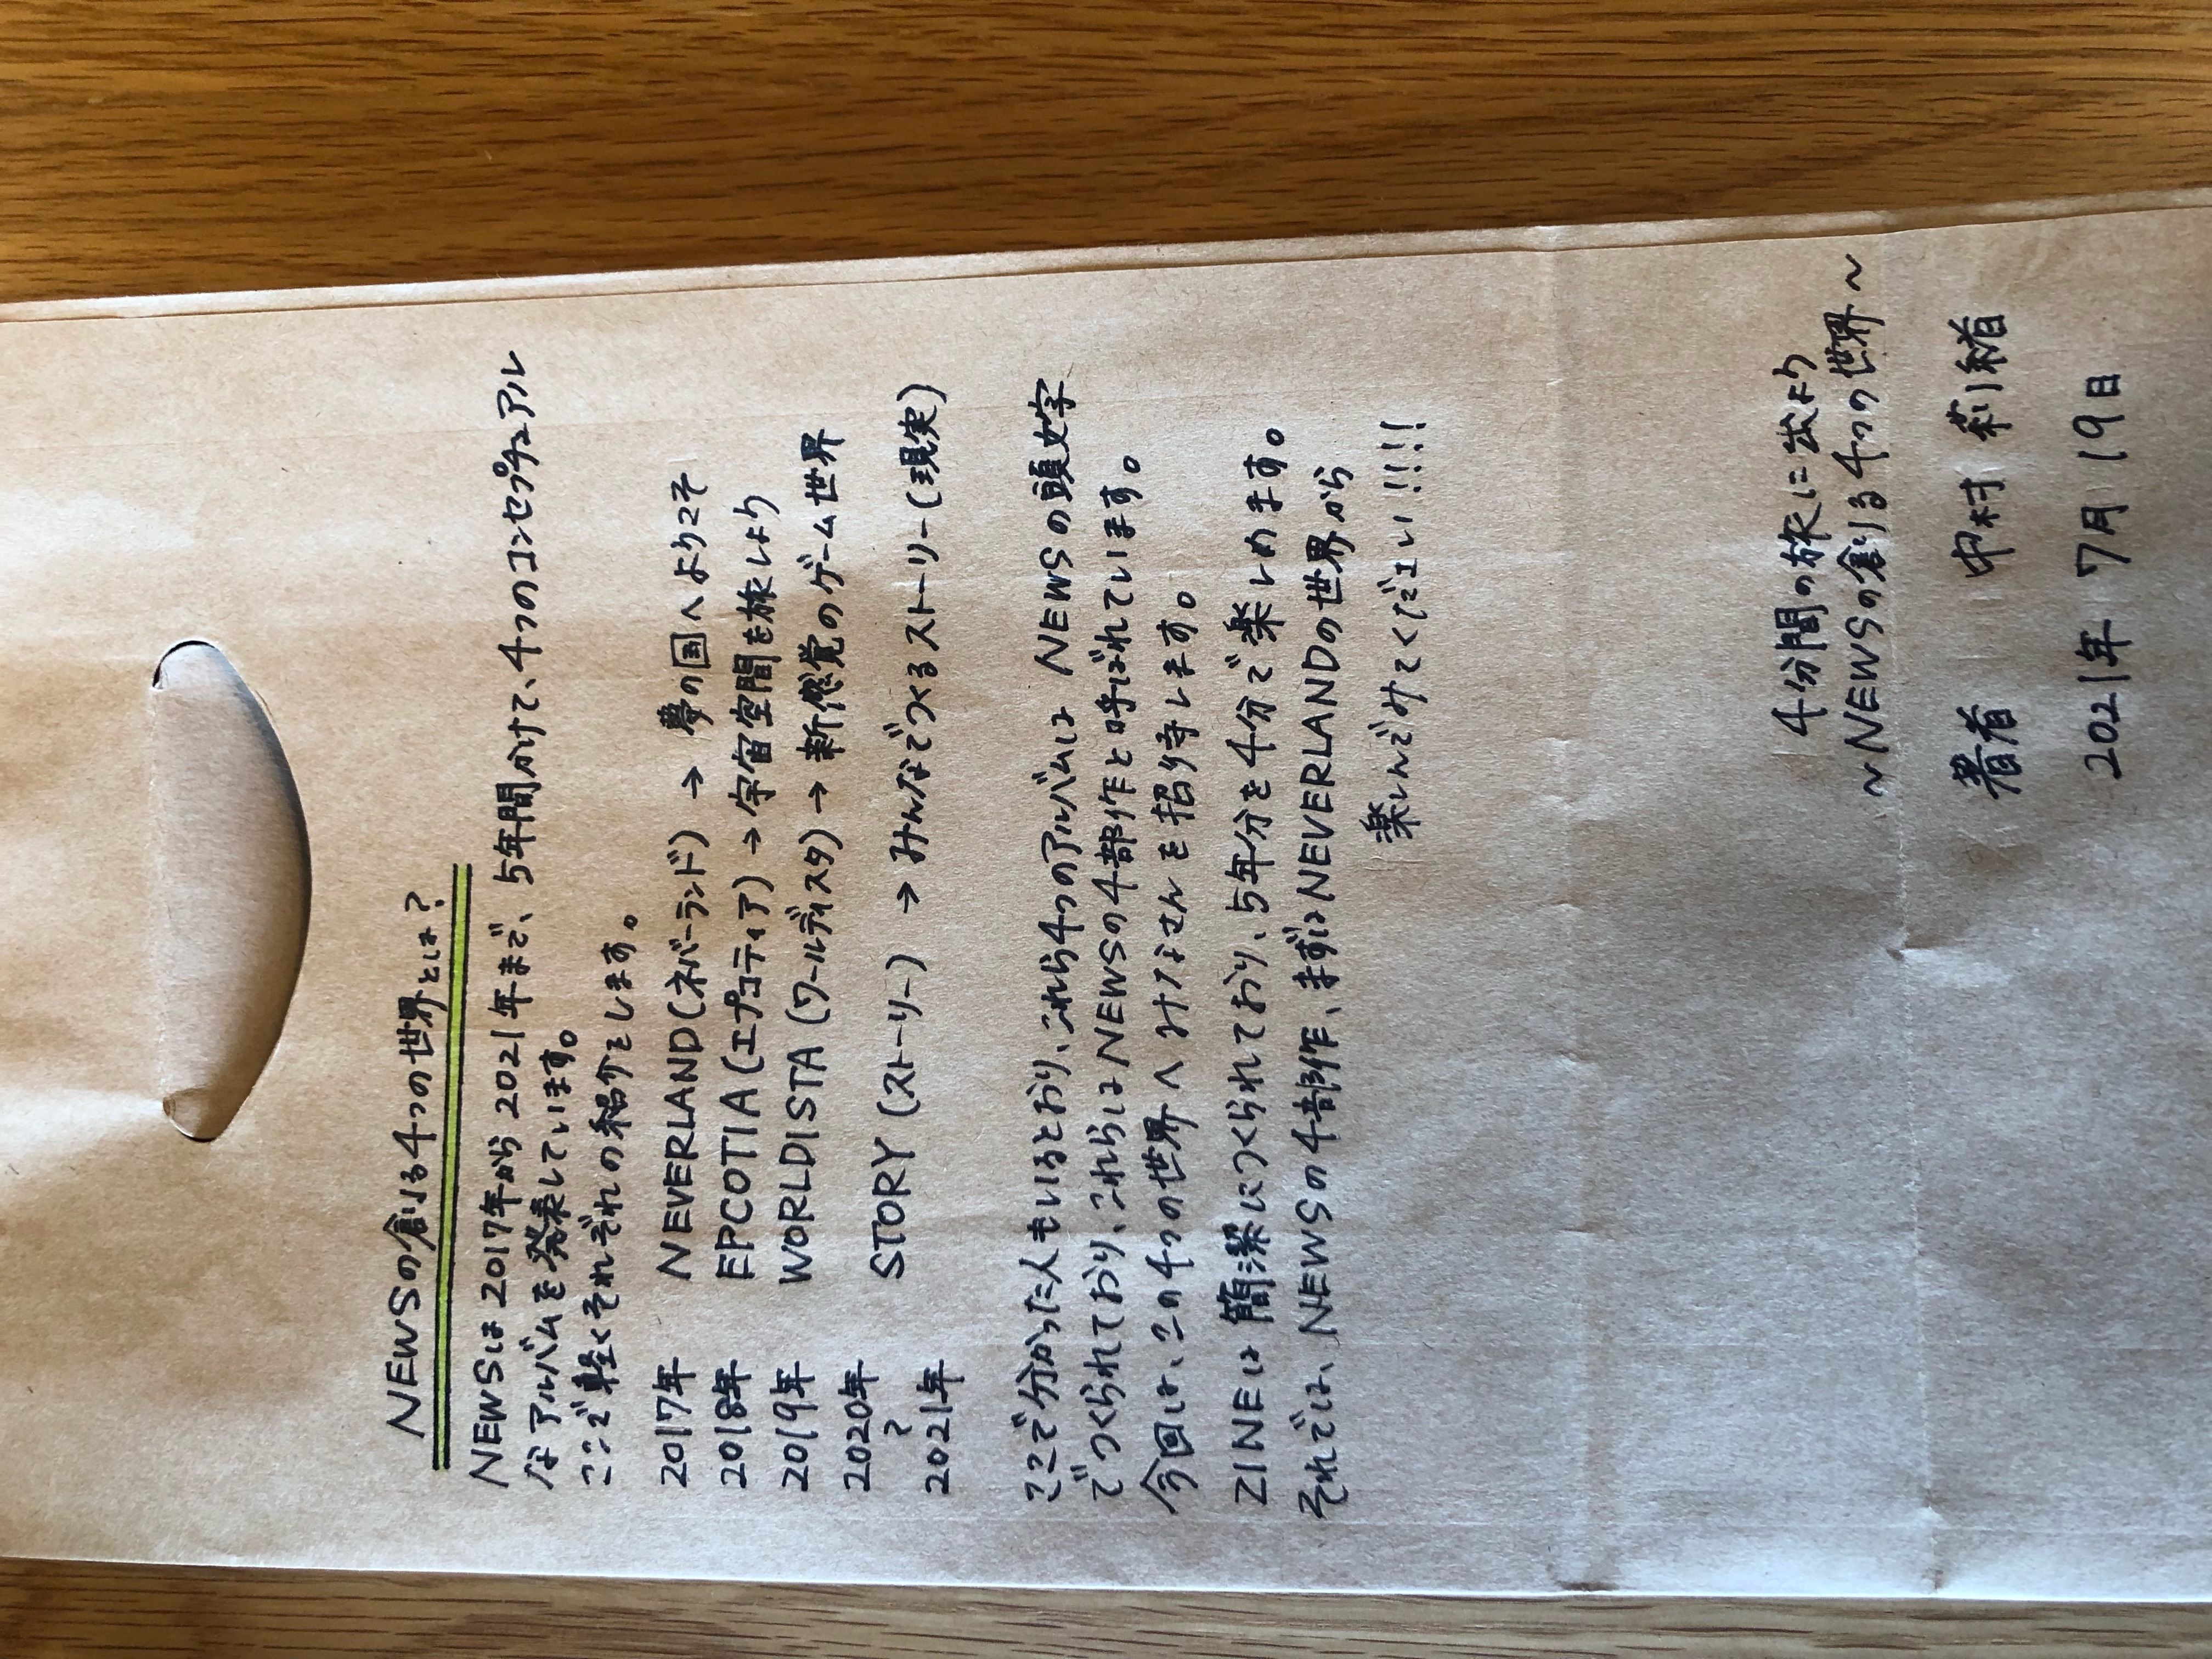 NEWSの創る4つの世界とは?
NEWSは2017年から2021年まで、5年間かけて、4つのコンセプチュアル
なアルバムを発表しています。
ここで軽くそれぞれの紹介をします。
2017年 NEVERLAND(ネバーランド) → 夢の国へようこそ
2018年 EPCOTIA(エプコティア) → 宇宙空間を旅しよう
2019年 WORLDISTA (ワールディスタ) → 新感覚のゲーム世界
2020年
〜
2021年 STORY (ストーリー) → みんなでつくるストーリー(現実)
ここで分かった人もいるとおり、これら4つのアルバムは NEWSの頭文字
でつくられており、これらはNEWSの4部作と呼ばれています。
今回は、この4つの世界へみなさんを招待します。
ZINEは簡潔につくられており、5年分を4分で楽しめます。
それでは、NEWSの4部作、まずはNEVERLANDの世界から
楽しんでみてください!!!!
4分間の旅に出よう
〜NEWSの創る4つの世界〜
著者 中村 莉緒
2021年 7月 19日